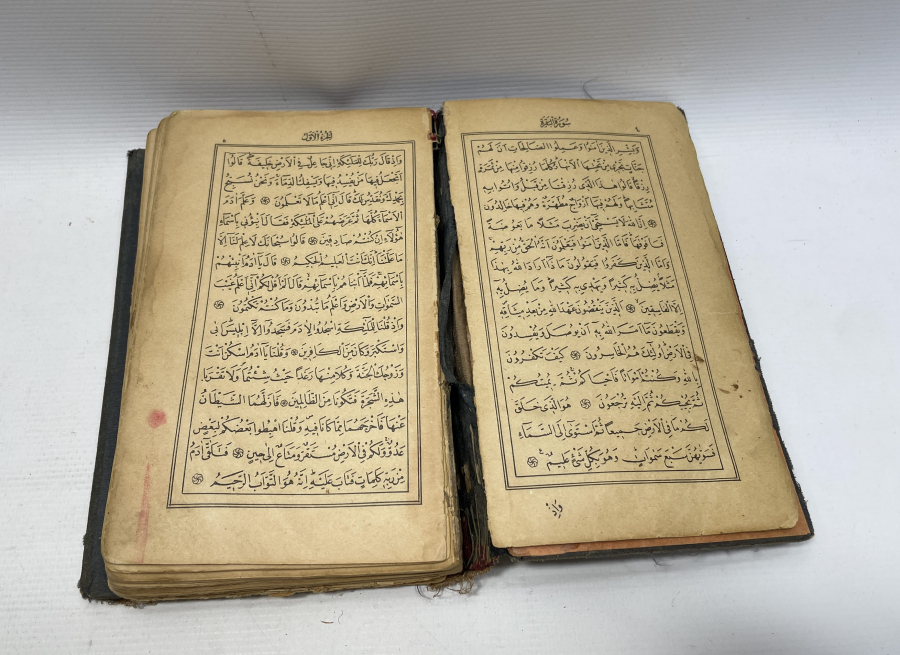 سورة البقرة
٤
وَبَشِّرِ الَّذِينَ اٰمَنُوا وَعَمِلُوا الصَّالِحَاتِ اَنَّ لَهُمْ
جَنَّاتٍ تَجْرِي مِنْ تَحْتِهَا الْاَنْهَارُ كُلَّمَا رُزِقُوا مِنْهَا مِنْ ثَمَرَةٍ
رِزْقًا قَالُوا هٰذَا الَّذِي رُزِقْنَا مِنْ قَبْلُ وَاُتُوا بِهِ
مُتَشَابِهًا وَلَهُمْ فِيهَا اَزْوَاجٌ مُطَهَّرَةٌ وَهُمْ فِيهَا خَالِدُونَ
۞ اِنَّ اللّٰهَ لَا يَسْتَحْيِي اَنْ يَضْرِبَ مَثَلًا مَا بَعُوضَةً
فَمَا فَوْقَهَا فَاَمَّا الَّذِينَ اٰمَنُوا فَيَعْلَمُونَ اَنَّهُ الْحَقُّ مِنْ رَبِّهِمْ
وَاَمَّا الَّذِينَ كَفَرُوا فَيَقُولُونَ مَاذَا اَرَادَ اللّٰهُ بِهٰذَا
مَثَلًا يُضِلُّ بِهِ كَثِيرًا وَيَهْدِي بِهِ كَثِيرًا وَمَا يُضِلُّ بِهِ
اِلَّا الْفَاسِقِينَ ۞ الَّذِينَ يَنْقُضُونَ عَهْدَ اللّٰهِ مِنْ بَعْدِ مِيثَاقِهِ
وَيَقْطَعُونَ مَا اَمَرَ اللّٰهُ بِهِ اَنْ يُوصَلَ وَيُفْسِدُونَ
فِي الْاَرْضِ اُولٰئِكَ هُمُ الْخَاسِرُونَ ۞ كَيْفَ تَكْفُرُونَ
بِاللّٰهِ وَكُنْتُمْ اَمْوَاتًا فَاَحْيَاكُمْ ثُمَّ يُمِيتُكُمْ
ثُمَّ يُحْيِيكُمْ ثُمَّ اِلَيْهِ تُرْجَعُونَ ۞ هُوَ الَّذِي خَلَقَ
لَكُمْ مَا فِي الْاَرْضِ جَمِيعًا ثُمَّ اسْتَوٰى اِلَى السَّمَاءِ
فَسَوّٰيهُنَّ سَبْعَ سَمٰوَاتٍ وَهُوَ بِكُلِّ شَيْءٍ عَلِيمٌ ۞
وَاِذْ
الجزء الاول
٥
وَاِذْ قَالَ رَبُّكَ لِلْمَلٰئِكَةِ اِنِّي جَاعِلٌ فِي الْاَرْضِ خَلِيفَةً قَالُوا
اَتَجْعَلُ فِيهَا مَنْ يُفْسِدُ فِيهَا وَيَسْفِكُ الدِّمَاءَ وَنَحْنُ نُسَبِّحُ
بِحَمْدِكَ وَنُقَدِّسُ لَكَ قَالَ اِنِّي اَعْلَمُ مَا لَا تَعْلَمُونَ ۞ وَعَلَّمَ اٰدَمَ
الْاَسْمَاءَ كُلَّهَا ثُمَّ عَرَضَهُمْ عَلَى الْمَلٰئِكَةِ فَقَالَ اَنْبِئُونِي بِاَسْمَاءِ
هٰؤُلَاءِ اِنْ كُنْتُمْ صَادِقِينَ ۞ قَالُوا سُبْحَانَكَ لَا عِلْمَ لَنَا اِلَّا
مَا عَلَّمْتَنَا اِنَّكَ اَنْتَ الْعَلِيمُ الْحَكِيمُ ۞ قَالَ يَا اٰدَمُ اَنْبِئْهُمْ
بِاَسْمَائِهِمْ فَلَمَّا اَنْبَاَهُمْ بِاَسْمَائِهِمْ قَالَ اَلَمْ اَقُلْ لَكُمْ اِنِّي اَعْلَمُ غَيْبَ
السَّمٰوَاتِ وَالْاَرْضِ وَاَعْلَمُ مَا تُبْدُونَ وَمَا كُنْتُمْ تَكْتُمُونَ ۞
وَاِذْ قُلْنَا لِلْمَلٰئِكَةِ اسْجُدُوا لِاٰدَمَ فَسَجَدُوا اِلَّا اِبْلِيسَ اَبٰى
وَاسْتَكْبَرَ وَكَانَ مِنَ الْكَافِرِينَ ۞ وَقُلْنَا يَا اٰدَمُ اسْكُنْ اَنْتَ
وَزَوْجُكَ الْجَنَّةَ وَكُلَا مِنْهَا رَغَدًا حَيْثُ شِئْتُمَا وَلَا تَقْرَبَا
هٰذِهِ الشَّجَرَةَ فَتَكُونَا مِنَ الظَّالِمِينَ ۞ فَاَزَلَّهُمَا الشَّيْطَانُ
عَنْهَا فَاَخْرَجَهُمَا مِمَّا كَانَا فِيهِ وَقُلْنَا اهْبِطُوا بَعْضُكُمْ لِبَعْضٍ
عَدُوٌّ وَلَكُمْ فِي الْاَرْضِ مُسْتَقَرٌّ وَمَتَاعٌ اِلٰى حِينٍ ۞ فَتَلَقّٰى اٰدَمُ
مِنْ رَبِّهِ كَلِمَاتٍ فَتَابَ عَلَيْهِ اِنَّهُ هُوَ التَّوَّابُ الرَّحِيمُ ۞